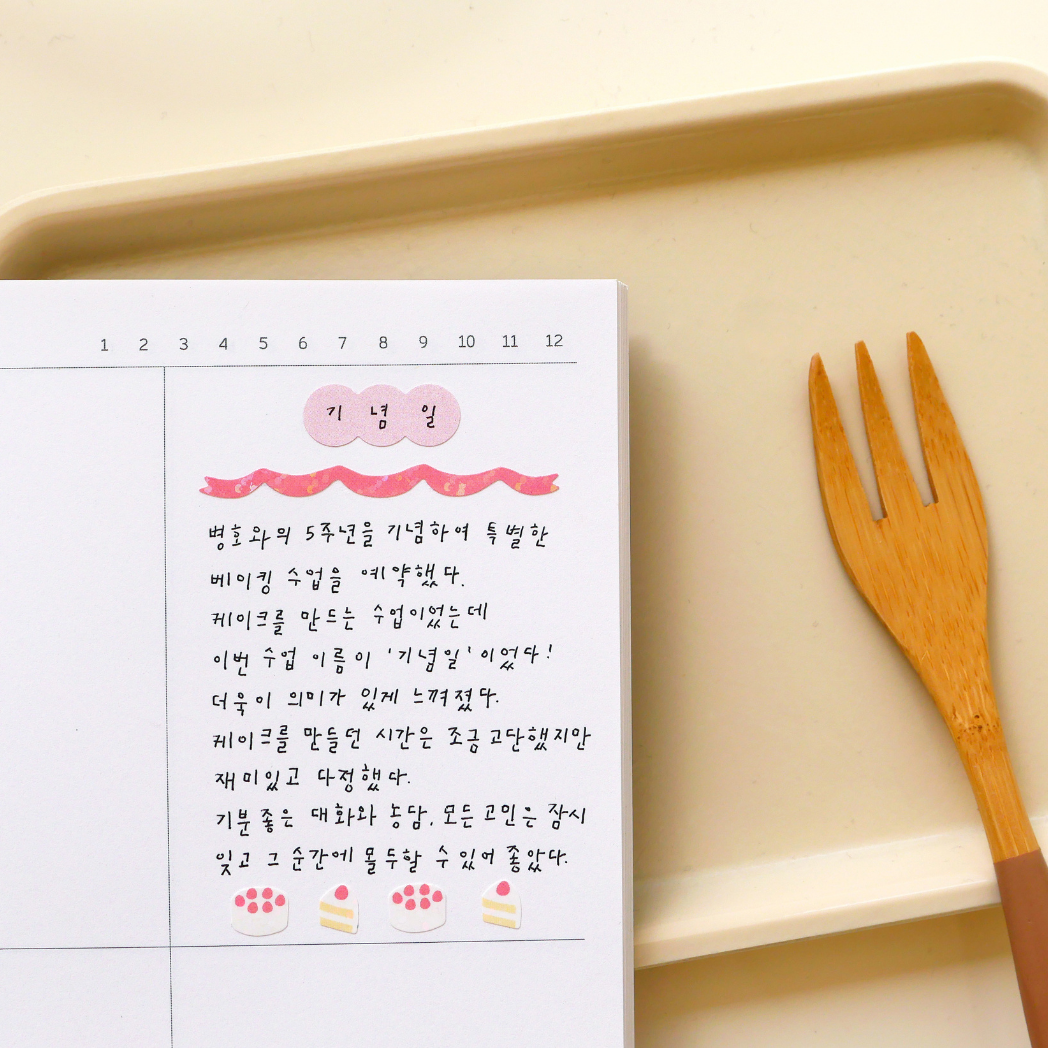 1 2 3 4 5 6 7 8 9 10 11 12
기념일
병호와의 5주년을 기념하여 특별한
베이킹 수업을 예약했다.
케이크를 만드는 수업이었는데
이번 수업 이름이 '기념일'이었다!
더욱이 의미가 있게 느껴졌다.
케이크를 만들던 시간은 조금 고단했지만
재미있고 다정했다.
기분 좋은 대화와 농담, 모든 고민은 잠시
잊고 그 순간에 몰두할 수 있어 좋았다.